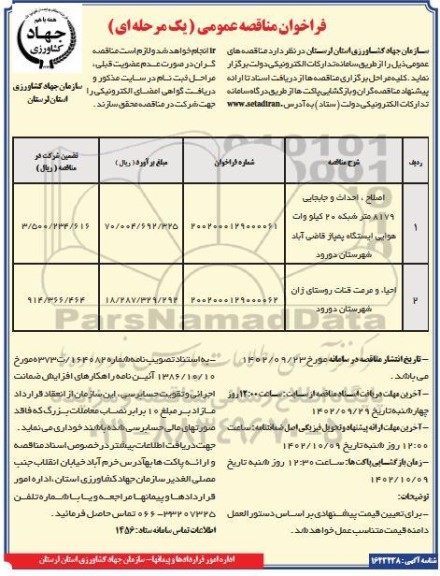 فراخوان مناقصه عمومی (یک مرحله ای)
همه با هم
جهاد
کشاورزی
سازمان جهاد کشاورزی
استان لرستان
سازمان جهاد کشاورزی استان لرستان در نظر دارد مناقصه های
عمومی ذیل را از طریق سامانه تدارکات الکترونیکی دولت برگزار
نماید. کلیه مراحل برگزاری مناقصه ها از دریافت اسناد تا ارائه
پیشنهاد مناقصه گران و بازگشایی پاکت ها از طریق درگاه سامانه
تدارکات الکترونیکی دولت (ستاد) به آدرس www.setadiran.
ir انجام خواهد شد و لازم است مناقصه
گران در صورت عدم عضویت قبلی،
مراحل ثبت نام در سایت مذکور و
دریافت گواهی امضای الکترونیکی را
جهت شرکت در مناقصه محقق سازند.
ردیف
شرح مناقصه
شماره فراخوان
مبلغ برآورد (ریال)
تضمین شرکت در
مناقصه (ریال)
۱
اصلاح، احداث و جابجایی
۸۱۷۹ متر شبکه ۲۰ کیلو وات
هوایی ایستگاه پمپاژ قاضی آباد
شهرستان دورود
۲۰۰۲۰۰۰۱۲۹۰۰۰۰۶۱
۷۰/۰۰۴/۶۹۲/۳۲۵
۳/۵۰۰/۲۳۴/۶۱۶
۲
احیاء و مرمت قنات روستای ژان
شهرستان دورود
۲۰۰۲۰۰۰۱۲۹۰۰۰۰۶۲
۱۸/۲۸۷/۳۲۹/۲۹۲
۹۱۴/۳۶۶/۴۶۴
ParsNamadData
–تاریخ انتشار مناقصه در سامانه مورخ ۱۴۰۲/۰۹/۲۳
می باشد.
–آخرین مهلت دریافت اسناد مناقصه از سایت: ساعت ۱۴:۰۰ روز
چهارشنبه تاریخ ۱۴۰۲/۰۹/۲۹
–آخرین مهلت ارائه پیشنهاد و تحویل فیزیکی اصل ضمانتنامه: ساعت
۱۲:۰۰ روز شنبه تاریخ ۱۴۰۲/۱۰/۰۹
–زمان بازگشایی پاکت ها: ساعت ۱۲:۳۰ روز شنبه تاریخ
۱۴۰۲/۱۰/۰۹
توضیحات:
–برای تعیین قیمت پیشنهادی بر اساس دستور العمل
دامنه قیمت متناسب عمل خواهد شد.
–به استناد تصویب نامه شماره ۱۶۴۰۸۲/ت۳۷۳ه مورخ
۱۳۸۶/۱۰/۱۰ آئین نامه راهکارهای افزایش ضمانت
اجرائی و تقویت حسابرسی، این سازمان از انعقاد قرارداد
مازاد بر مبلغ ۱۰ برابر نصاب معاملات بزرگ که فاقد
صورتهای مالی حسابرسی شده باشند خودداری می نماید.
جهت دریافت اطلاعات بیشتر در خصوص اسناد مناقصه
و ارائه پاکت ها به آدرس خرم آباد خیابان انقلاب جنب
مصلی الغدیر سازمان جهاد کشاورزی استان، اداره امور
قراردادها و پیمانها مراجعه و یا با شماره تلفن
۰۶۶–۳۳۲۰۷۳۲۵ تماس حاصل فرمائید.
اطلاعات تماس سامانه ستاد: ۱۴۵۶
شناسه آگهی: ۱۶۲۲۴۳۸
اداره امور قراردادها و پیمانها – سازمان جهاد کشاورزی استان لرستان